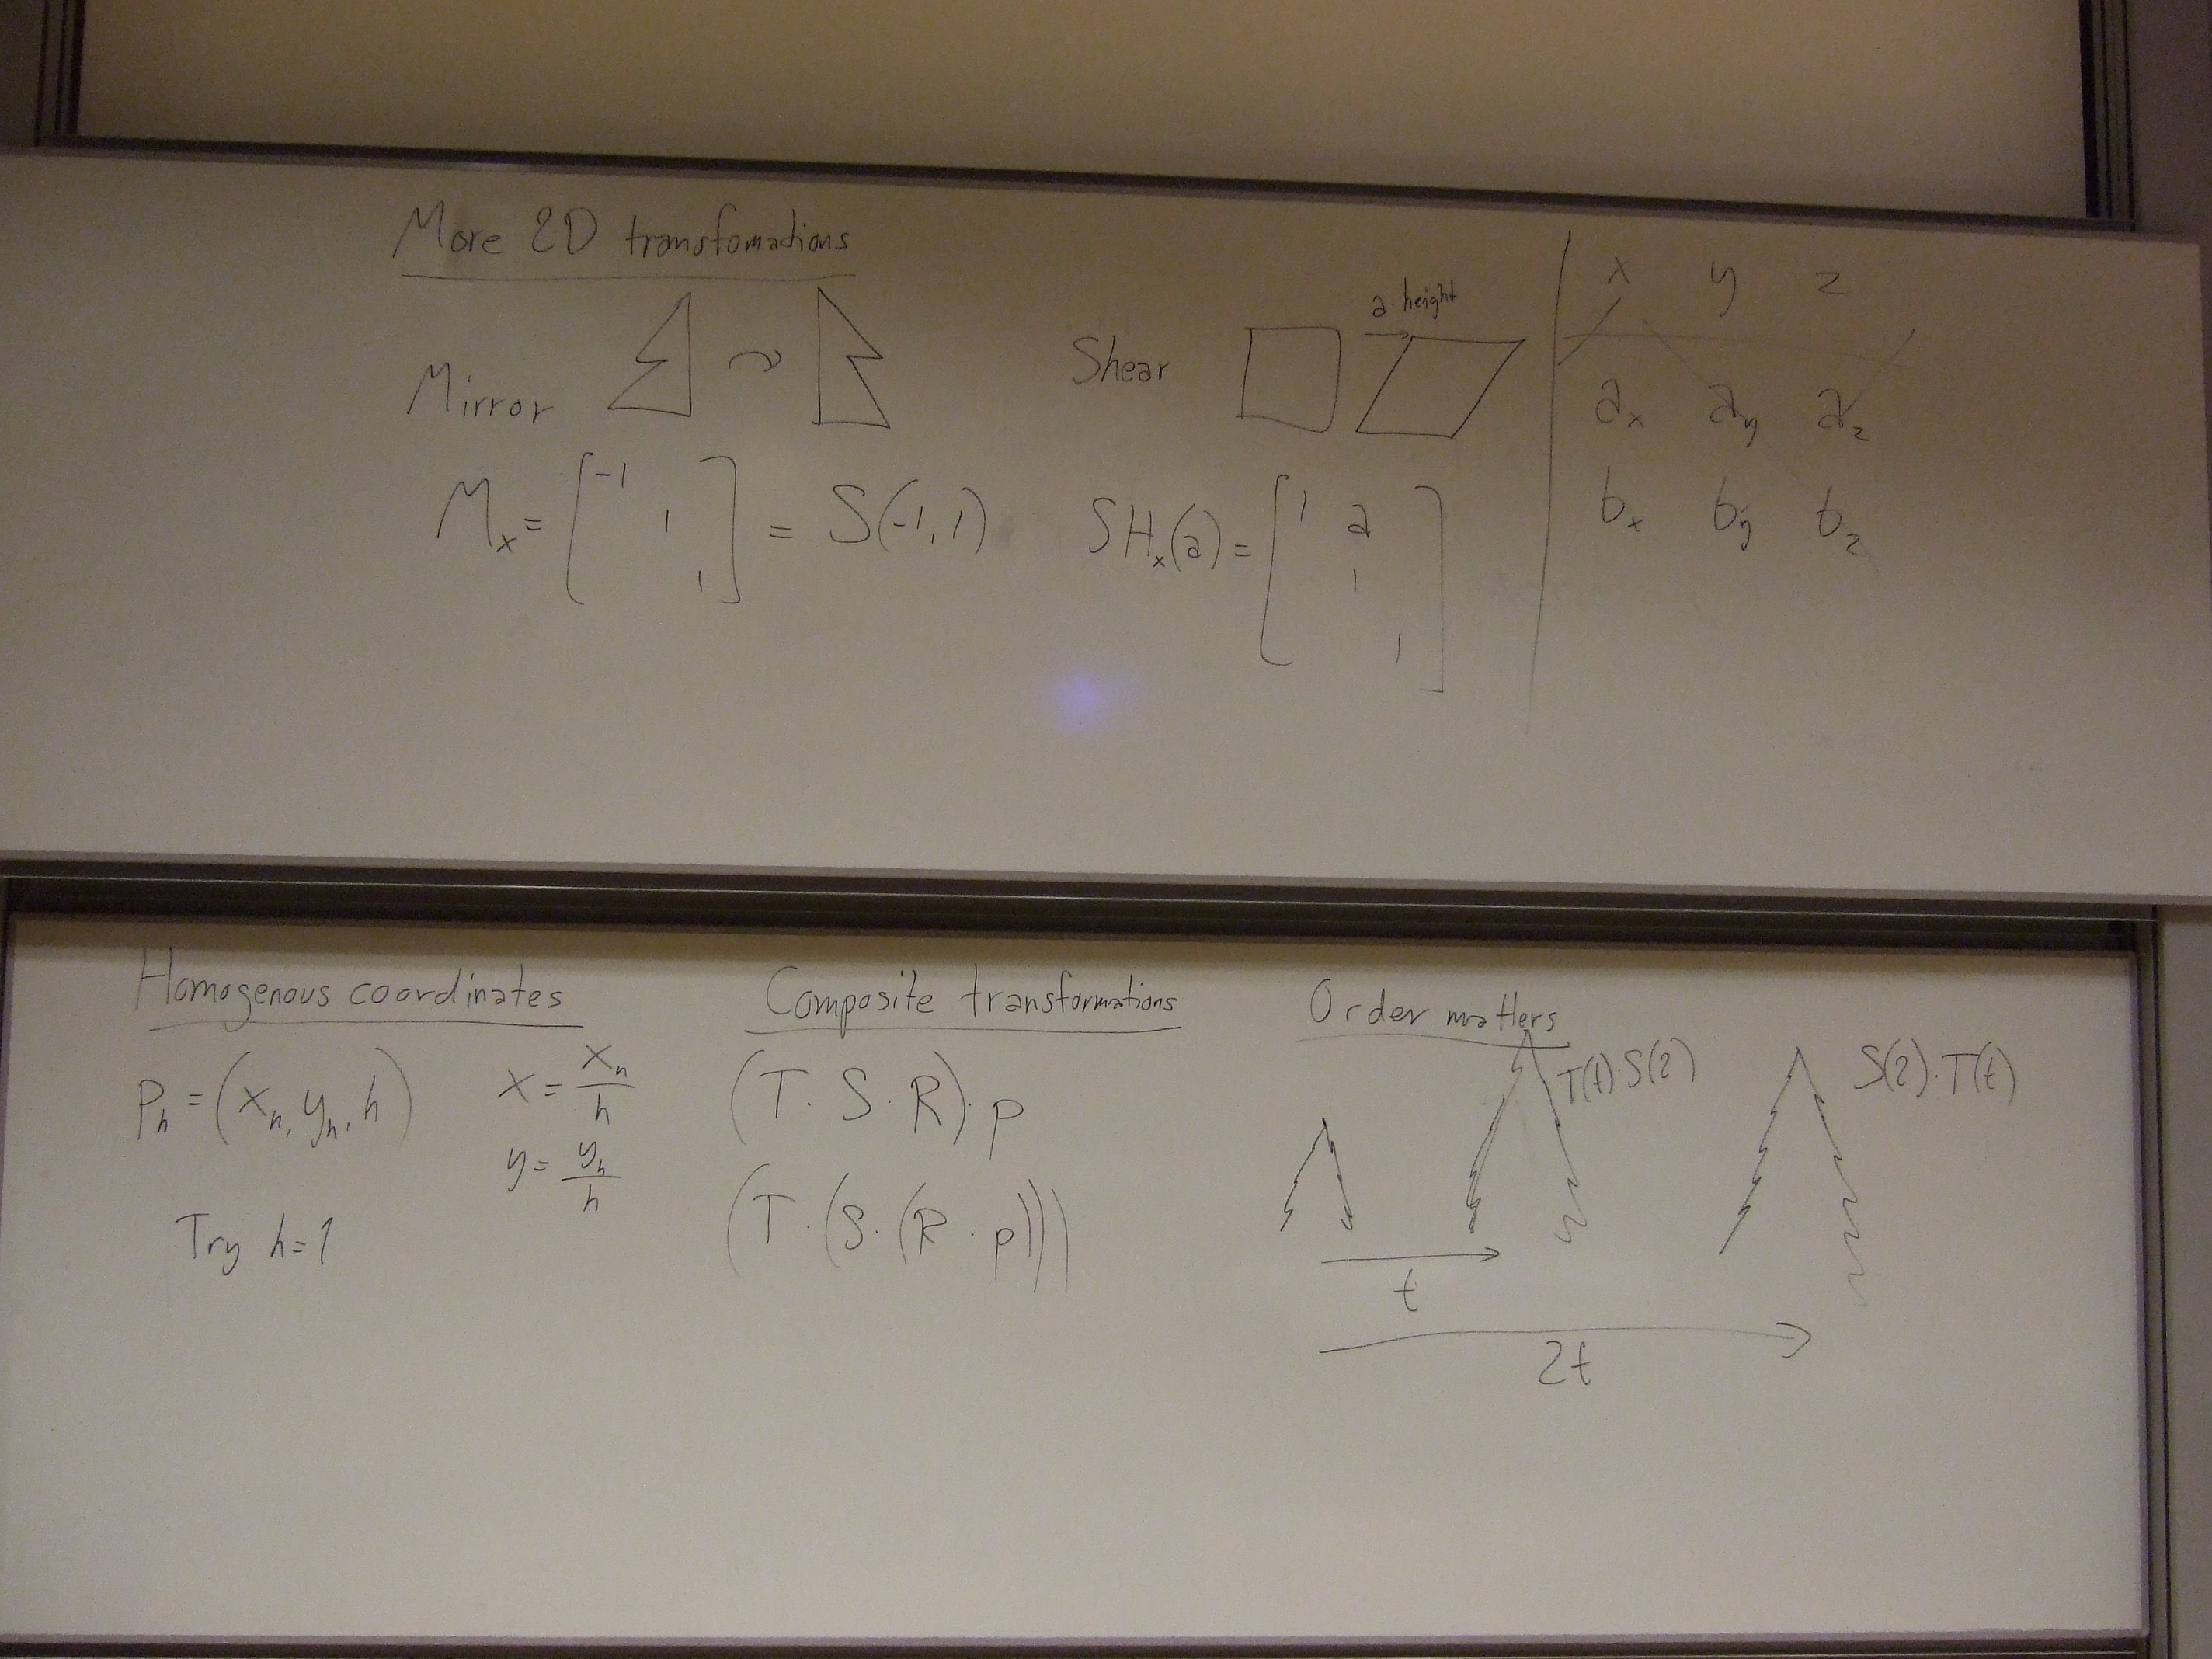 More 2D transfomations
Mirror
Mx = [ -1
1
1 ] = S(-1, 1)
Shear
a·height
SHx(a) = [ 1 a
1
1 ]
x y z
ax ay az
bx by bz
Homogenous coordinates
Ph = (xh, yh, h)
x = xh/h
y = yh/h
Try h=1
Composite transformations
(T·S·R)·p
(T·(S·(R·p)))
Order matters
T(t)·S(2)
S(2)·T(t)
t
2t